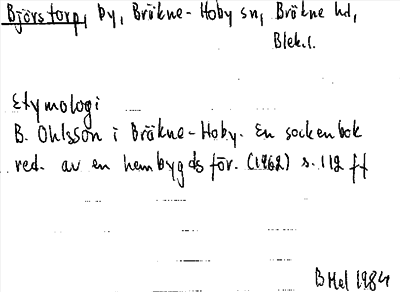 Björstorp, by, Bräkne-Hoby sn, Bräkne hd,
Blek.l.
Etymologi
B. Ohlsson i Bräkne-Hoby. En sockenbok
red. av en hembygdsför. (1962) s. 112 ff
B Mel 1984